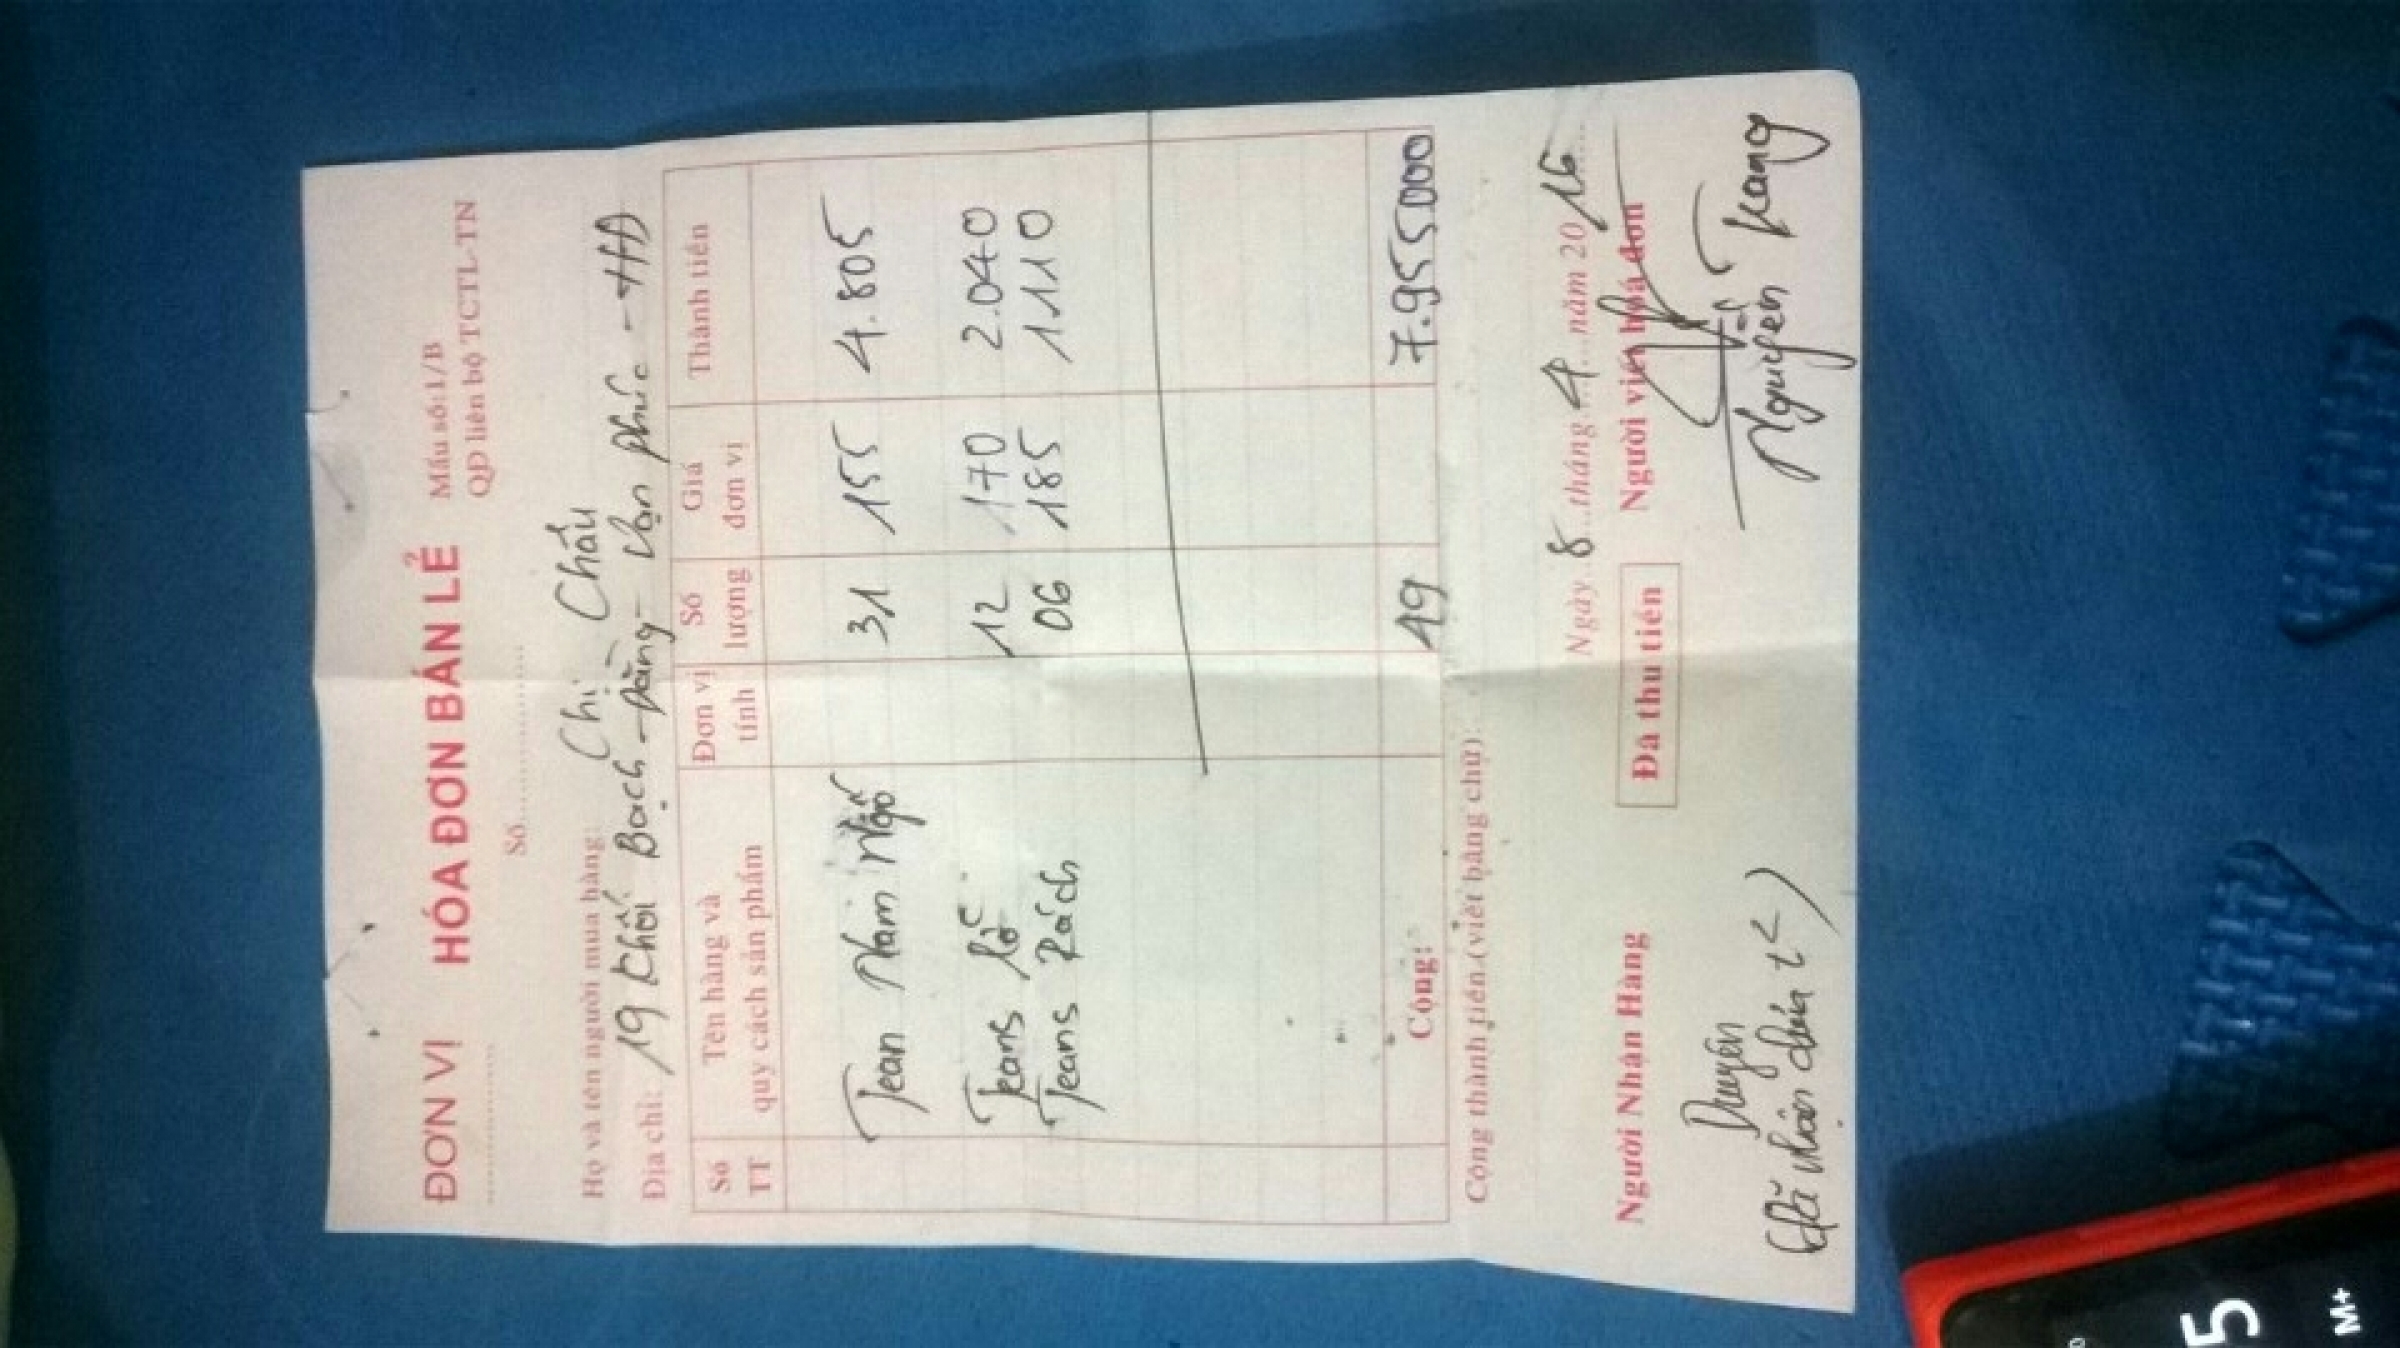 ĐƠN VỊ HÓA ĐƠN BÁN LẺ Mẫu số:1/B
............... Số................. QĐ liên bộ TCTL-TN
Họ và tên người mua hàng: Chị Châu
Địa chỉ: 19 Khối Bạch Đằng - Vạn Phúc - HĐ
Số TT Tên hàng và quy cách sản phẩm Đơn vị tính Số lượng Giá đơn vị Thành tiền
Jean Nam Ngố 31 155 4.805
Jeans lỡ 12 170 2.040
Jeans Rách 06 185 1110
Cộng: 49 7.955.000
Cộng thành tiền (viết bằng chữ):
Ngày 8 tháng 4 năm 2016
Người Nhận Hàng Đã thu tiền Người viết hoá đơn
Duyên
Nguyễn Trang
5
M+